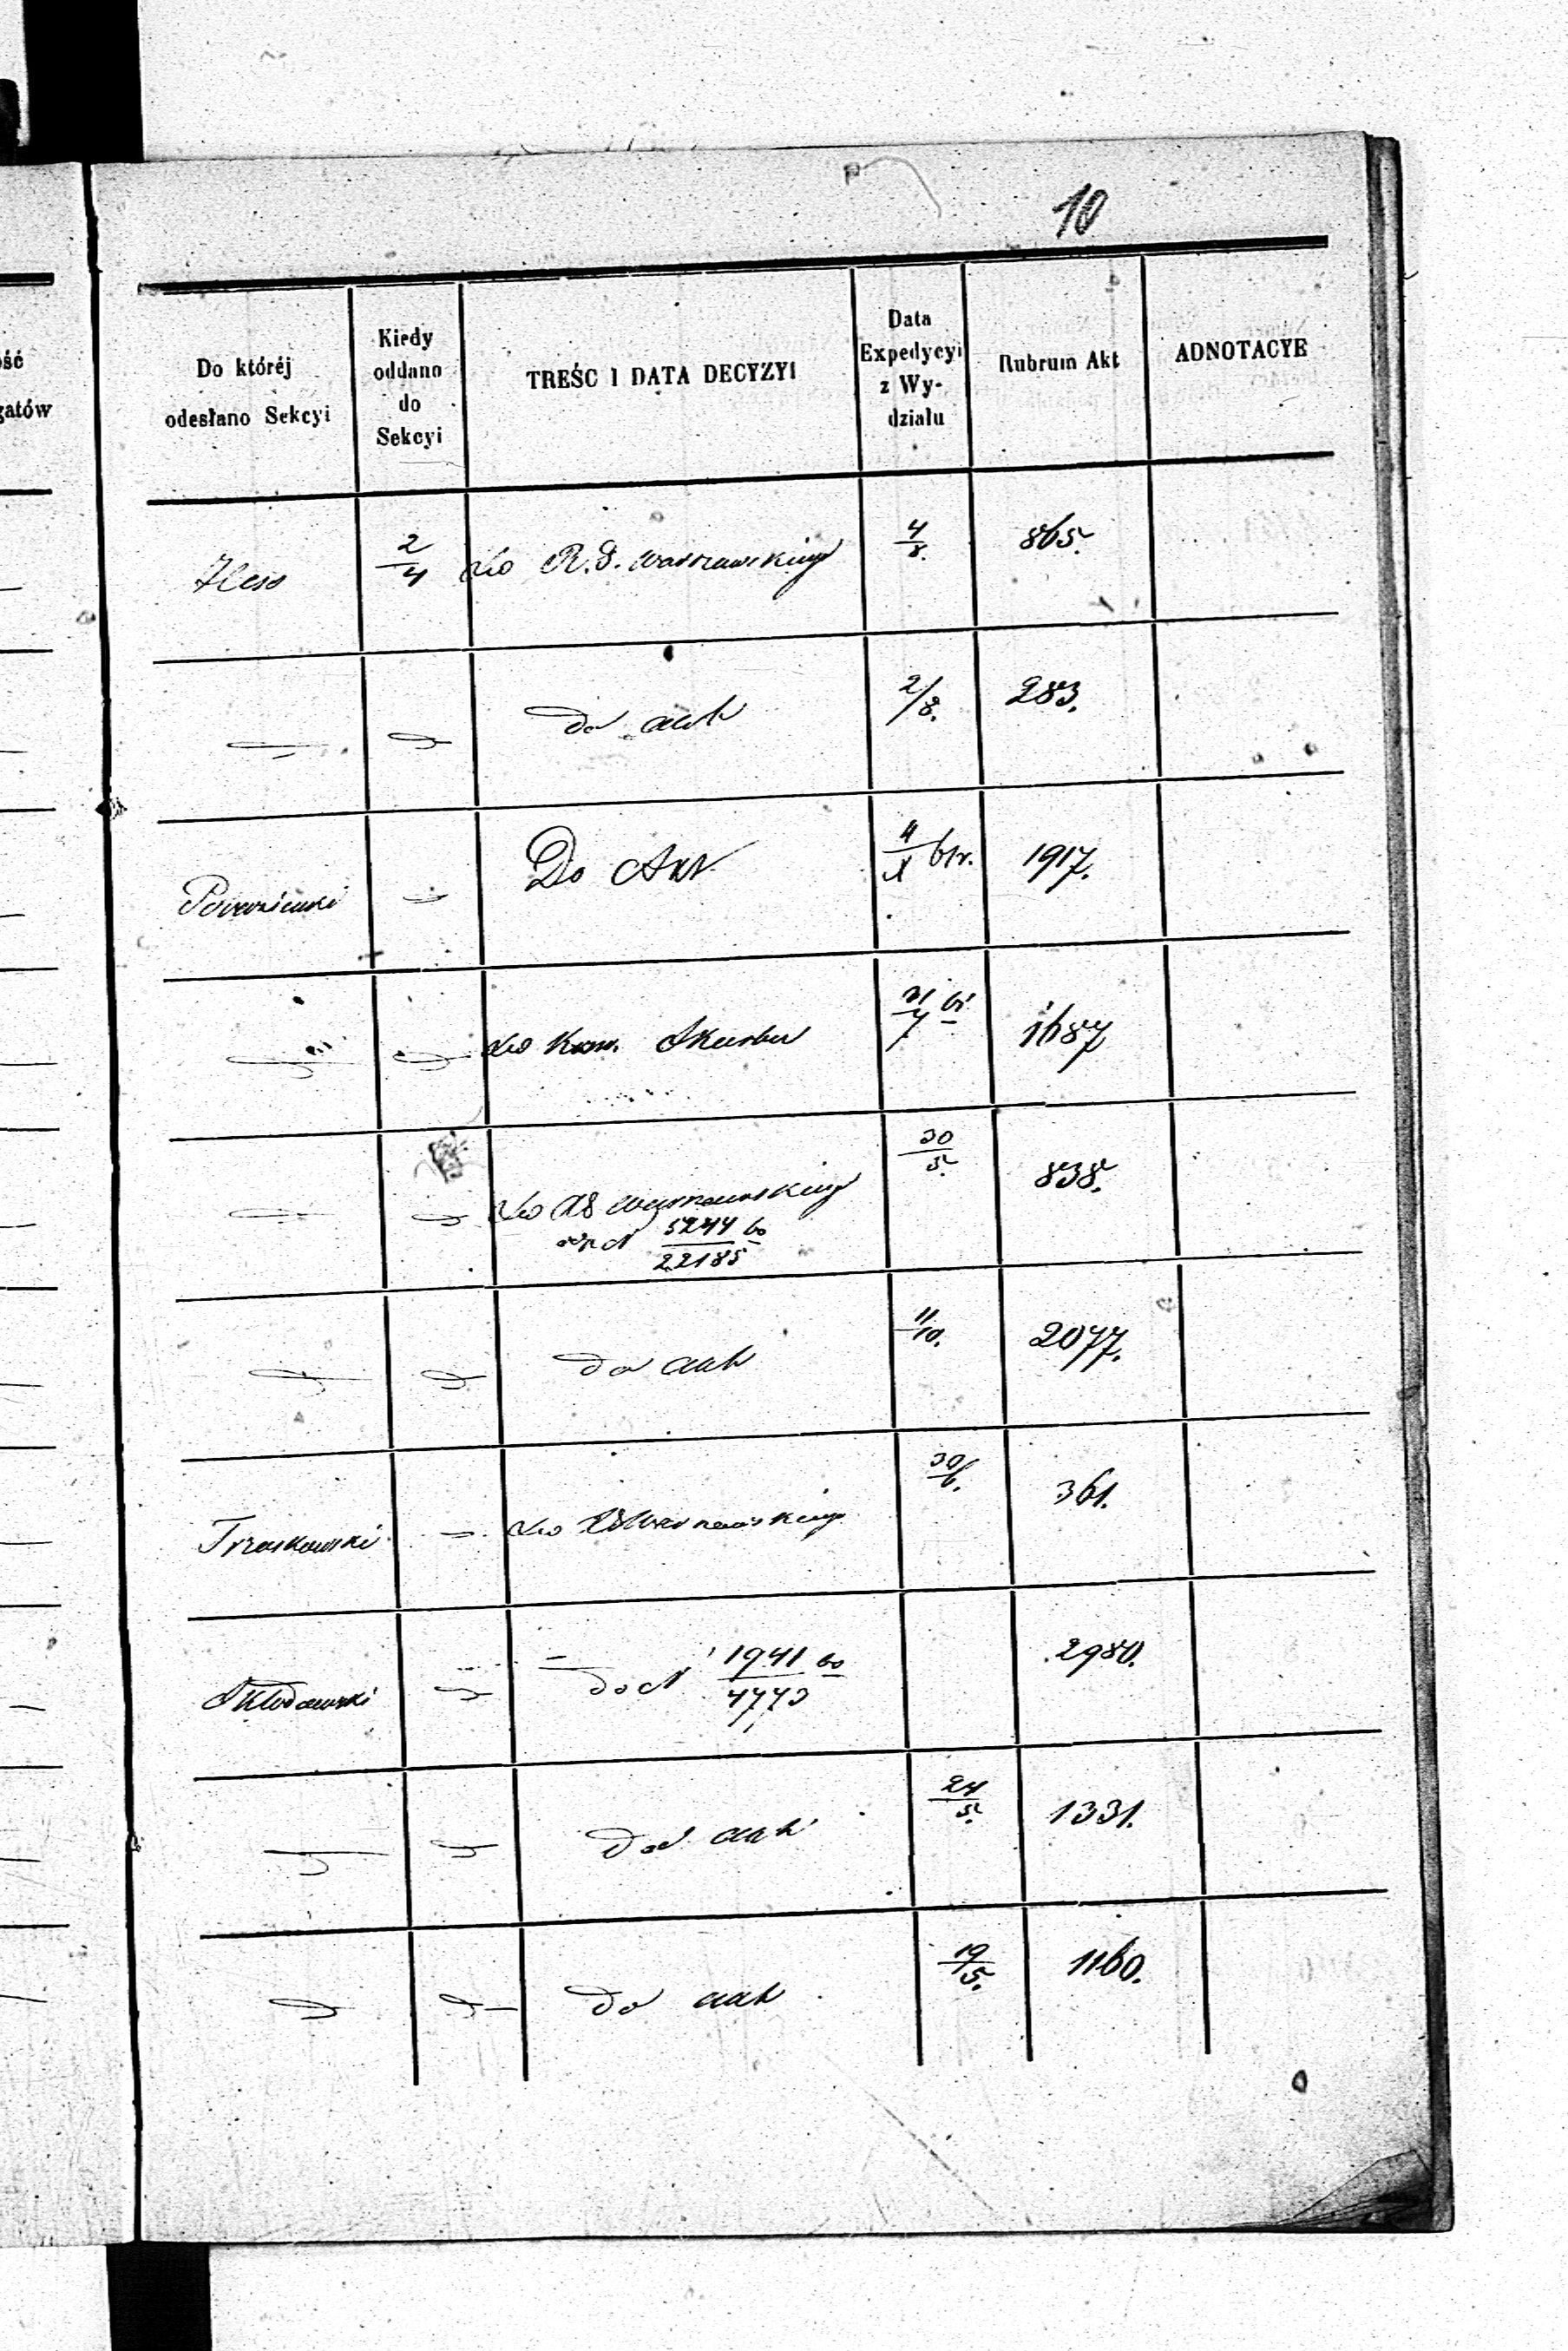 10
ść
gatów
Do któréj
odesłano Sekcyi
Kiedy
oddano
do
Sekcyi
TREŚC I DATA DECYZYI
Data
Expedycyi
z Wy-
działu
Rubrum Akt
ADNOTACYE
Hess 2/4 do R.G. Warszawskiego 4/8. 865.
do akt 2/8. 283.
Do Akt 4/X 61r. 1917.
do Kom. Skarbu 31/7 61 1687
do RG Warszawskiego 30/5. 838.
5244 60
22185
do akt 11/10. 2077.
Trzaskowski do RG Warszawskiego 30/6. 361.
Skłodowski do N 1941 60 2980.
4773
do akt 24/5. 1331.
do akt 19/5. 1160.